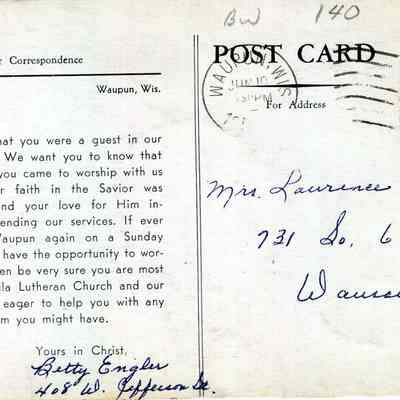 BW 140
Correspondence
Waupun, Wis.
hat you were a guest in our
We want you to know that
you came to worship with us
r faith in the Savior was
nd your love for Him in-
ending our services. If ever
Waupun again on a Sunday
have the opportunity to wor-
en be very sure you are most
la Lutheran Church and our
eager to help you with any
m you might have.
Yours in Christ,
Betty Engler
408 W. Jefferson St.
POST CARD
WAUPUN, WIS.
JUN 10
PM
For Address
Mrs. Lawrence
731 So. 6
Wausa